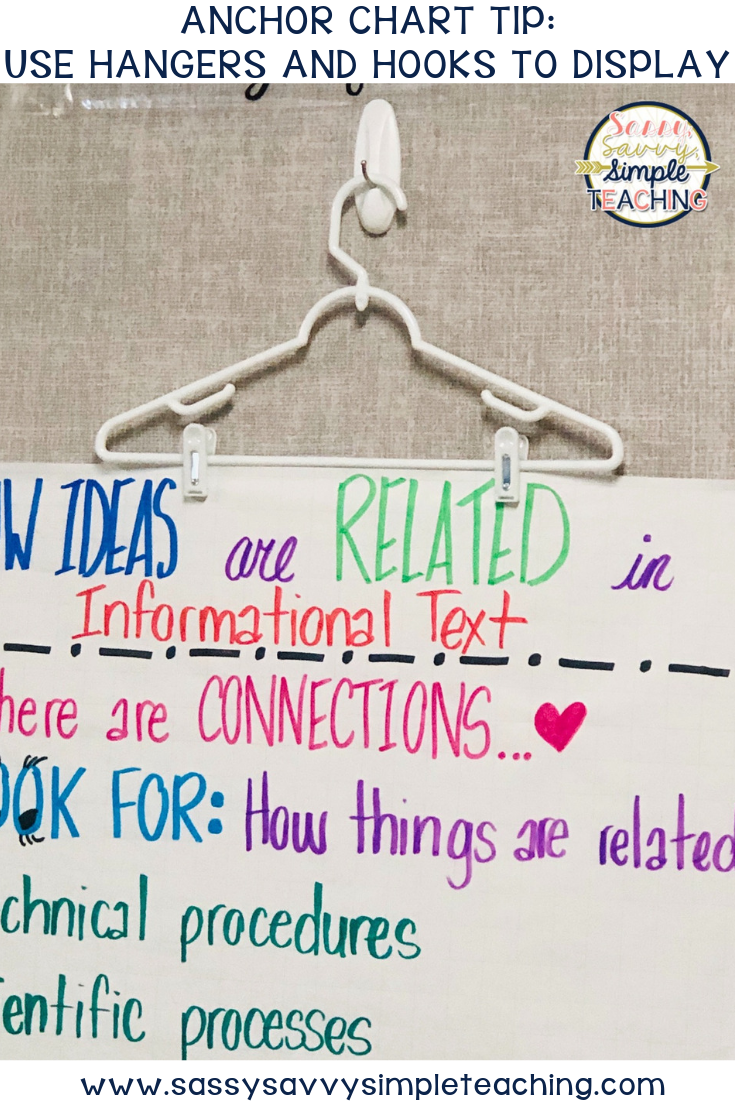 ANCHOR CHART TIP:
USE HANGERS AND HOOKS TO DISPLAY
Sassy,
Savvy,
Simple
TEACHING
W IDEAS are RELATED in
Informational Text
here are CONNECTIONS...
OOK FOR: How things are related
chnical procedures
entific processes
www.sassysavvysimpleteaching.com